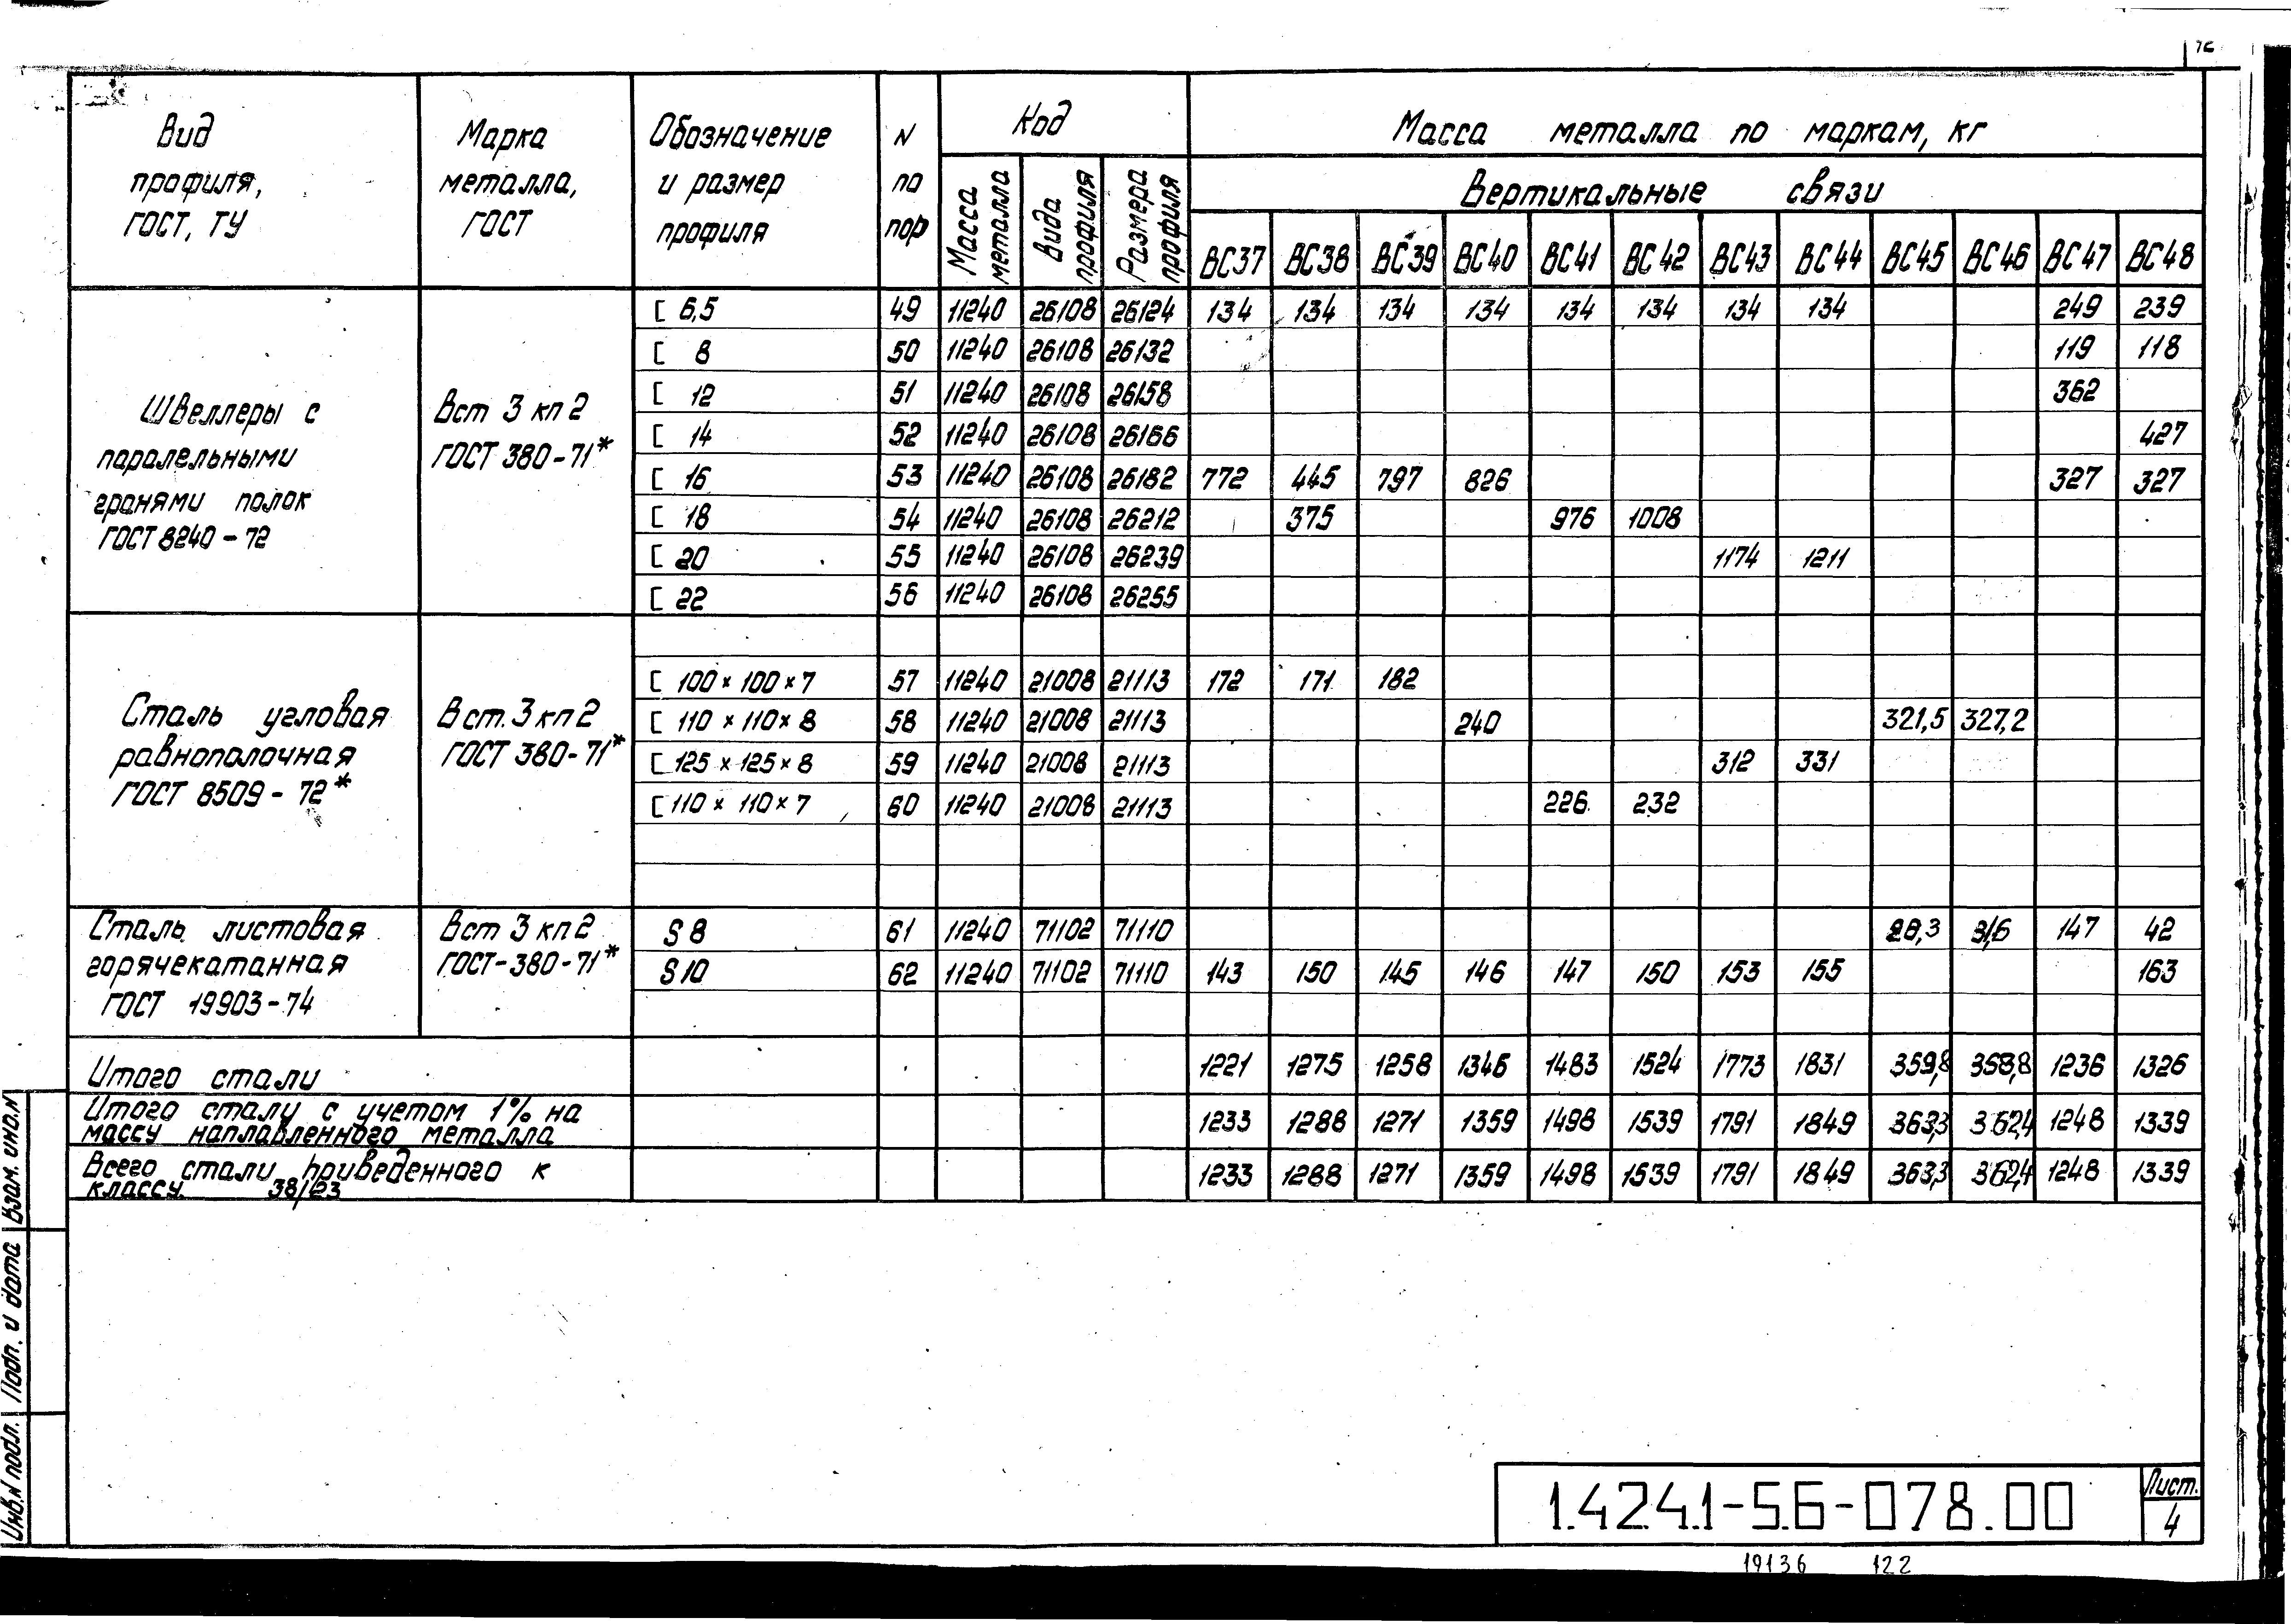 Вид профиля, ГОСТ, ТУ
Марка металла, ГОСТ
Обозначение и размер профиля
N по пор
Код
Масса металла по маркам, кг
Масса металла
Вида профиля
Размера профиля
Вертикальные связи
ВС37 ВС38 ВС39 ВС40 ВС41 ВС42 ВС43 ВС44 ВС45 ВС46 ВС47 ВС48
Швеллеры с
паралельными
гранями полок
ГОСТ 8240-72
Вст 3 кп 2
ГОСТ 380-71*
[ 6,5 49 11240 26108 26124 134 134 134 134 134 134 134 134 249 239
[ 8 50 11240 26108 26132 119 118
[ 12 51 11240 26108 26158 362
[ 14 52 11240 26108 26166 427
[ 16 53 11240 26108 26182 772 445 797 826 327 327
[ 18 54 11240 26108 26212 375 976 1008
[ 20 55 11240 26108 26239 1174 1211
[ 22 56 11240 26108 26255
Сталь угловая
равнополочная
ГОСТ 8509-72*
Вст. 3 кп 2
ГОСТ 380-71*
[ 100×100×7 57 11240 21008 21113 172 171 182
[ 110×110×8 58 11240 21008 21113 240 321,5 327,2
[ 125×125×8 59 11240 21008 21113 312 331
[ 110×110×7 60 11240 21008 21113 226 232
Сталь листовая
горячекатанная
ГОСТ 19903-74
Вст 3 кп 2
ГОСТ-380-71*
S 8 61 11240 71102 71110 31,6 147 42
S 10 62 11240 71102 71110 143 150 145 146 147 150 153 155 163
Итого стали 1221 1275 1258 1346 1483 1524 1773 1831 359,8 358,8 1236 1326
Итого сталу с учетом 1% на
массу наплавленного металла 1233 1288 1271 1359 1498 1539 1791 1849 363,3 362,4 1248 1339
Всего стали приведенного к
классу 38/23 1233 1288 1271 1359 1498 1539 1791 1849 363,3 362,4 1248 1339
Инв.N подл. Подп. и дата Взам. инв.N
1.424.1-5.6-078.00
Лист.
4
19136 122